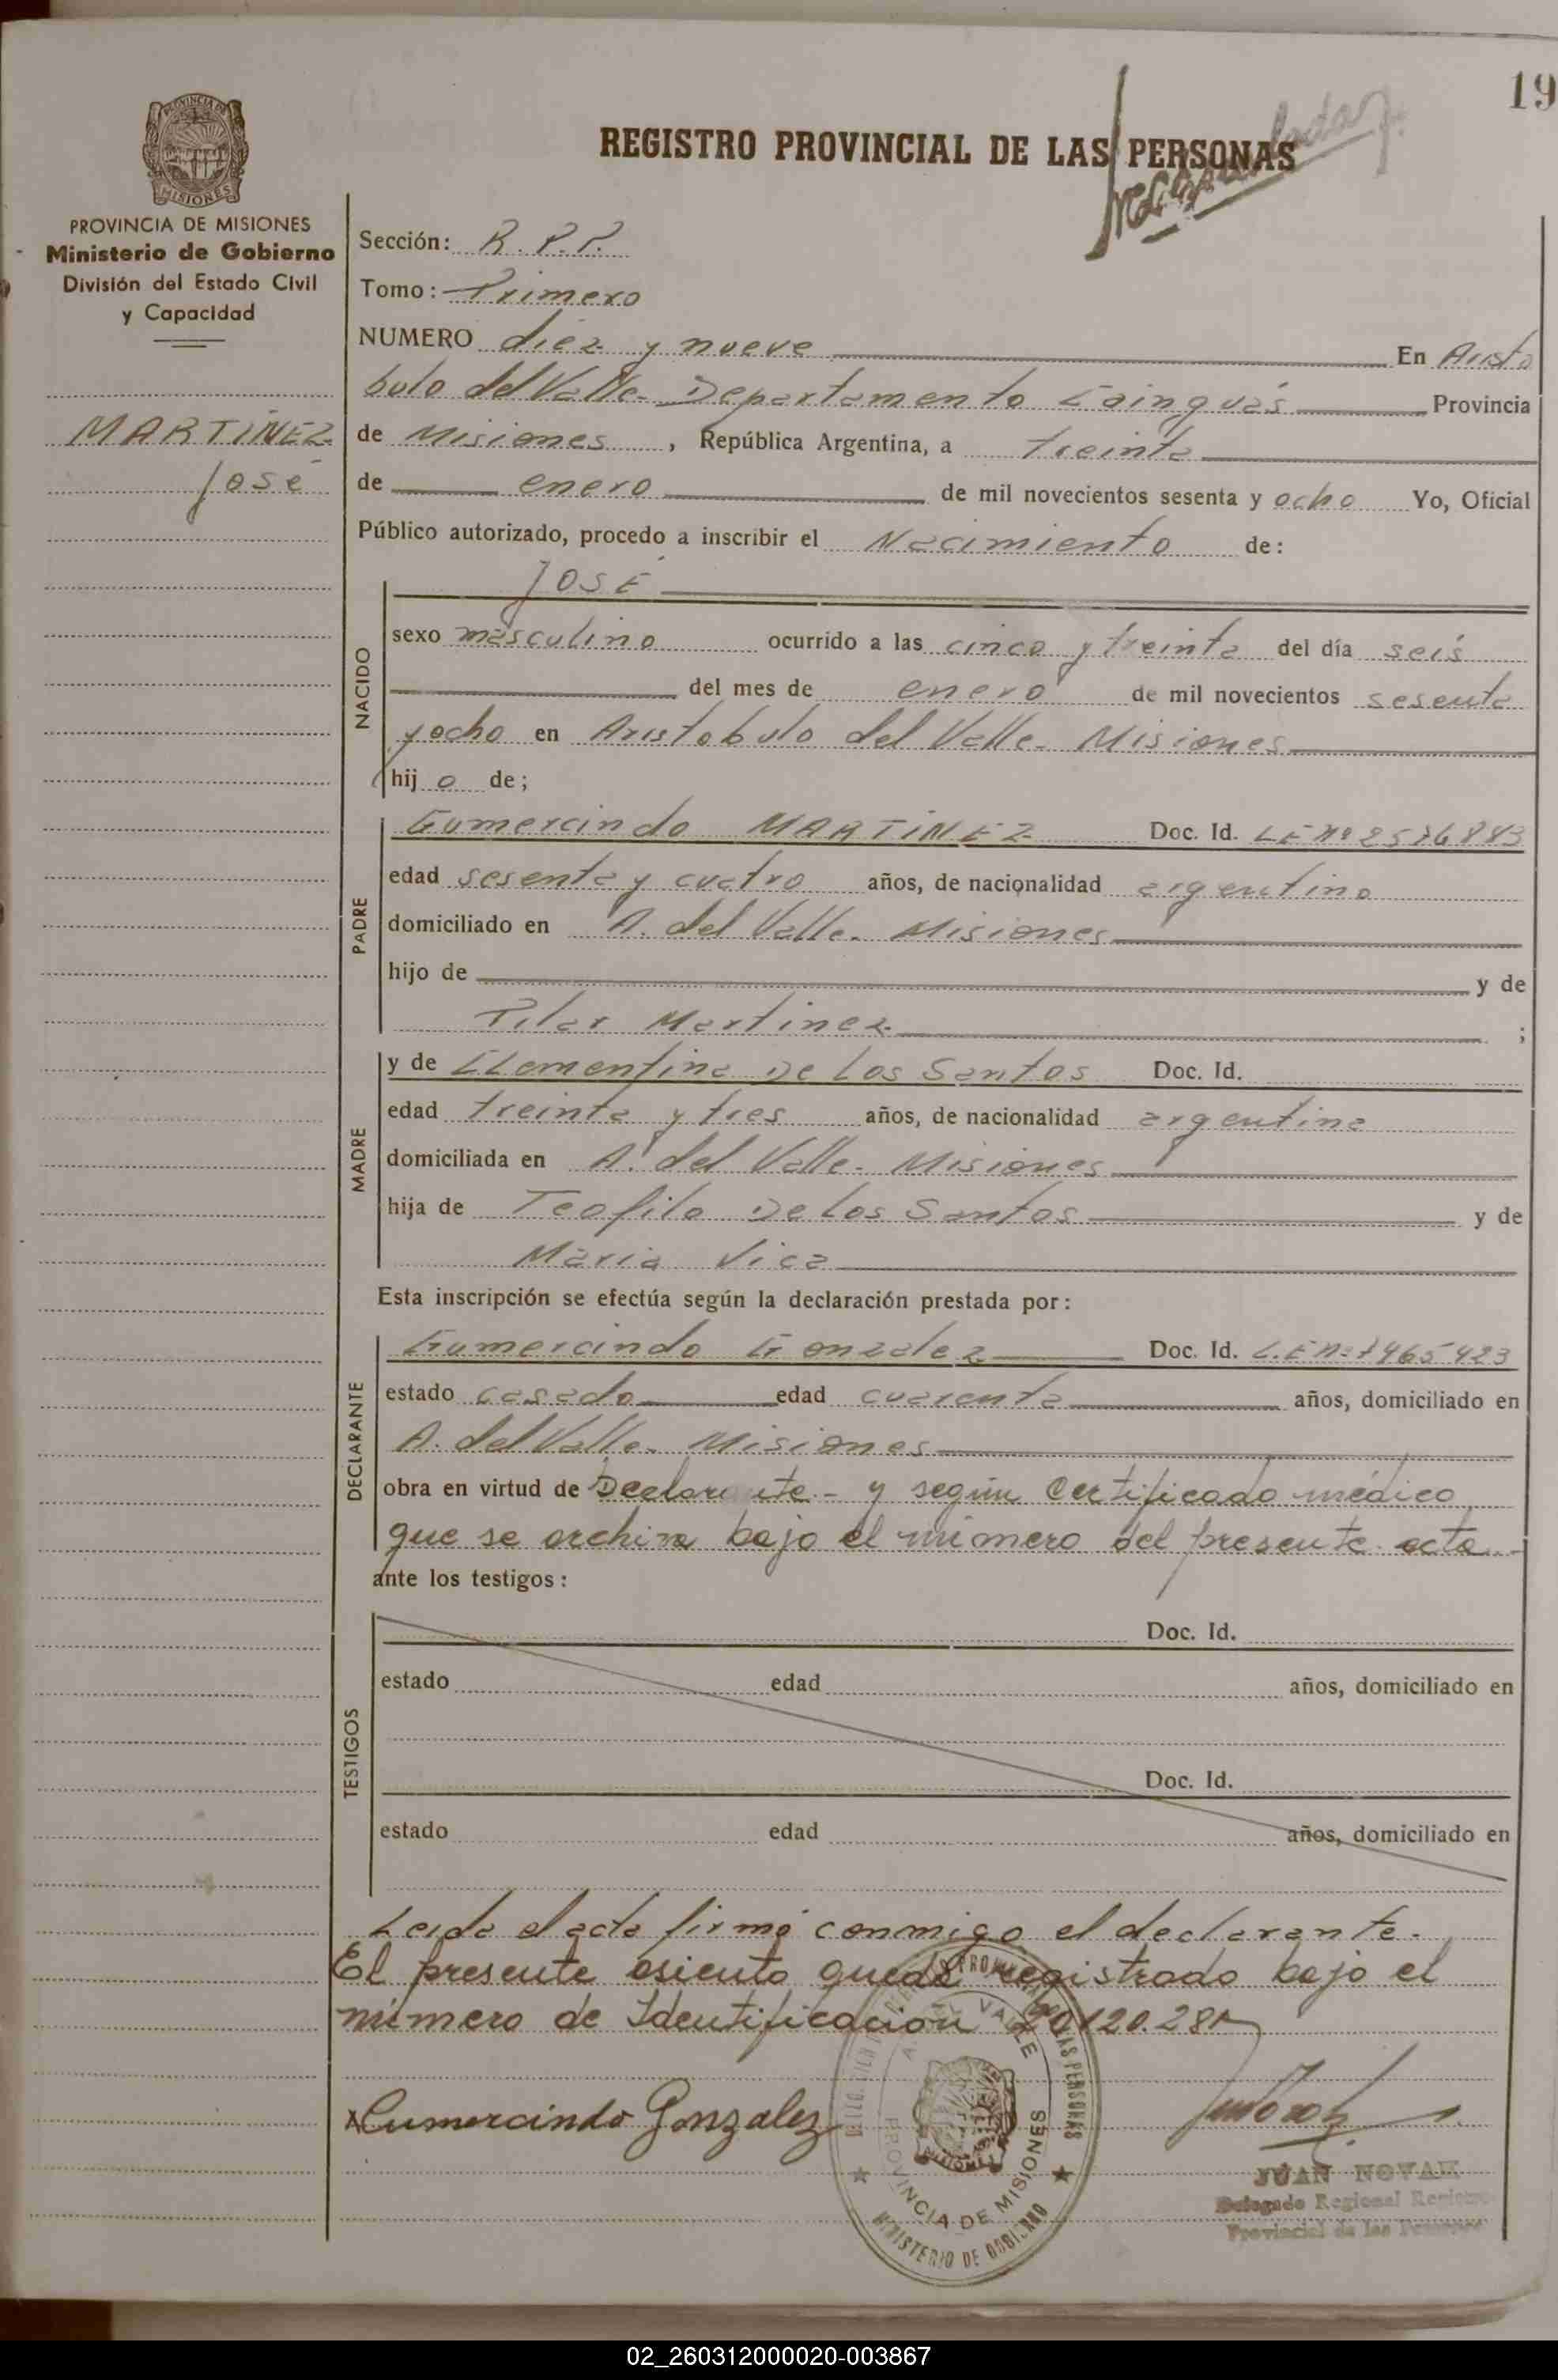 19
REGISTRO PROVINCIAL DE LAS PERSONAS
PROVINCIA DE MISIONES
Ministerio de Gobierno
División del Estado Civil
y Capacidad
MARTINEZ
José
Sección: R. P. P.
Tomo: Primero
NUMERO diez y nueve En Aristo
bulo del Valle - Departamento Cainguás Provincia
de Misiones, República Argentina, a treinta
de enero de mil novecientos sesenta y ocho Yo, Oficial
Público autorizado, procedo a inscribir el Nacimiento de:
JOSÉ
NACIDO
sexo masculino ocurrido a las cinco y treinta del día seis
del mes de enero de mil novecientos sesenta
y ocho en Aristobulo del Valle - Misiones
hijo de;
PADRE
Gumercindo MARTINEZ Doc. Id. LE nº
edad sesenta y cuatro años, de nacionalidad argentino
domiciliado en A. del Valle - Misiones
hijo de y de
Pilar Martinez ;
MADRE
y de Clementina De Los Santos Doc. Id.
edad treinta y tres años, de nacionalidad argentina
domiciliada en A. del Valle - Misiones
hija de Teofilo De los Santos y de
Maria
Esta inscripción se efectúa según la declaración prestada por:
DECLARANTE
Gumercindo Gonzalez Doc. Id. L.E nº 7465423
estado casado edad cuarenta años, domiciliado en
A. del Valle - Misiones
obra en virtud de Declarante - y según Certificado médico
que se archiva bajo el número del presente acta
ante los testigos:
TESTIGOS
Doc. Id.
estado edad años, domiciliado en
Doc. Id.
estado edad años, domiciliado en
Leida el acta firmó conmigo el declarante.
El presente asiento queda registrado bajo el
número de Identificación 20120.281
Gumercindo Gonzalez
PROVINCIA DE MISIONES
MINISTERIO DE GOBIERNO
JUAN NOVAK
Delegado Regional Registro
Provincial de las Personas
02_260312000020-003867